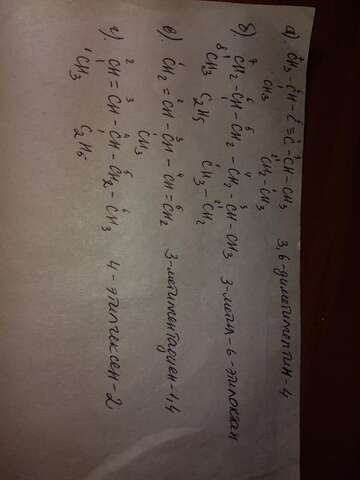 а) CH3-CH-C≡C-CH-CH3 3,6-диметилгептин-4
CH3 CH2-CH3
б) CH2-CH-CH2-CH2-CH-CH3 3-метил-6-этилоктан
CH3 C2H5 CH3-CH2
в) CH2=CH-CH-CH=CH2 3-метилпентадиен-1,4
CH3
г) CH=CH-CH-CH2-CH3 4-этилгексен-2
CH3 C2H5